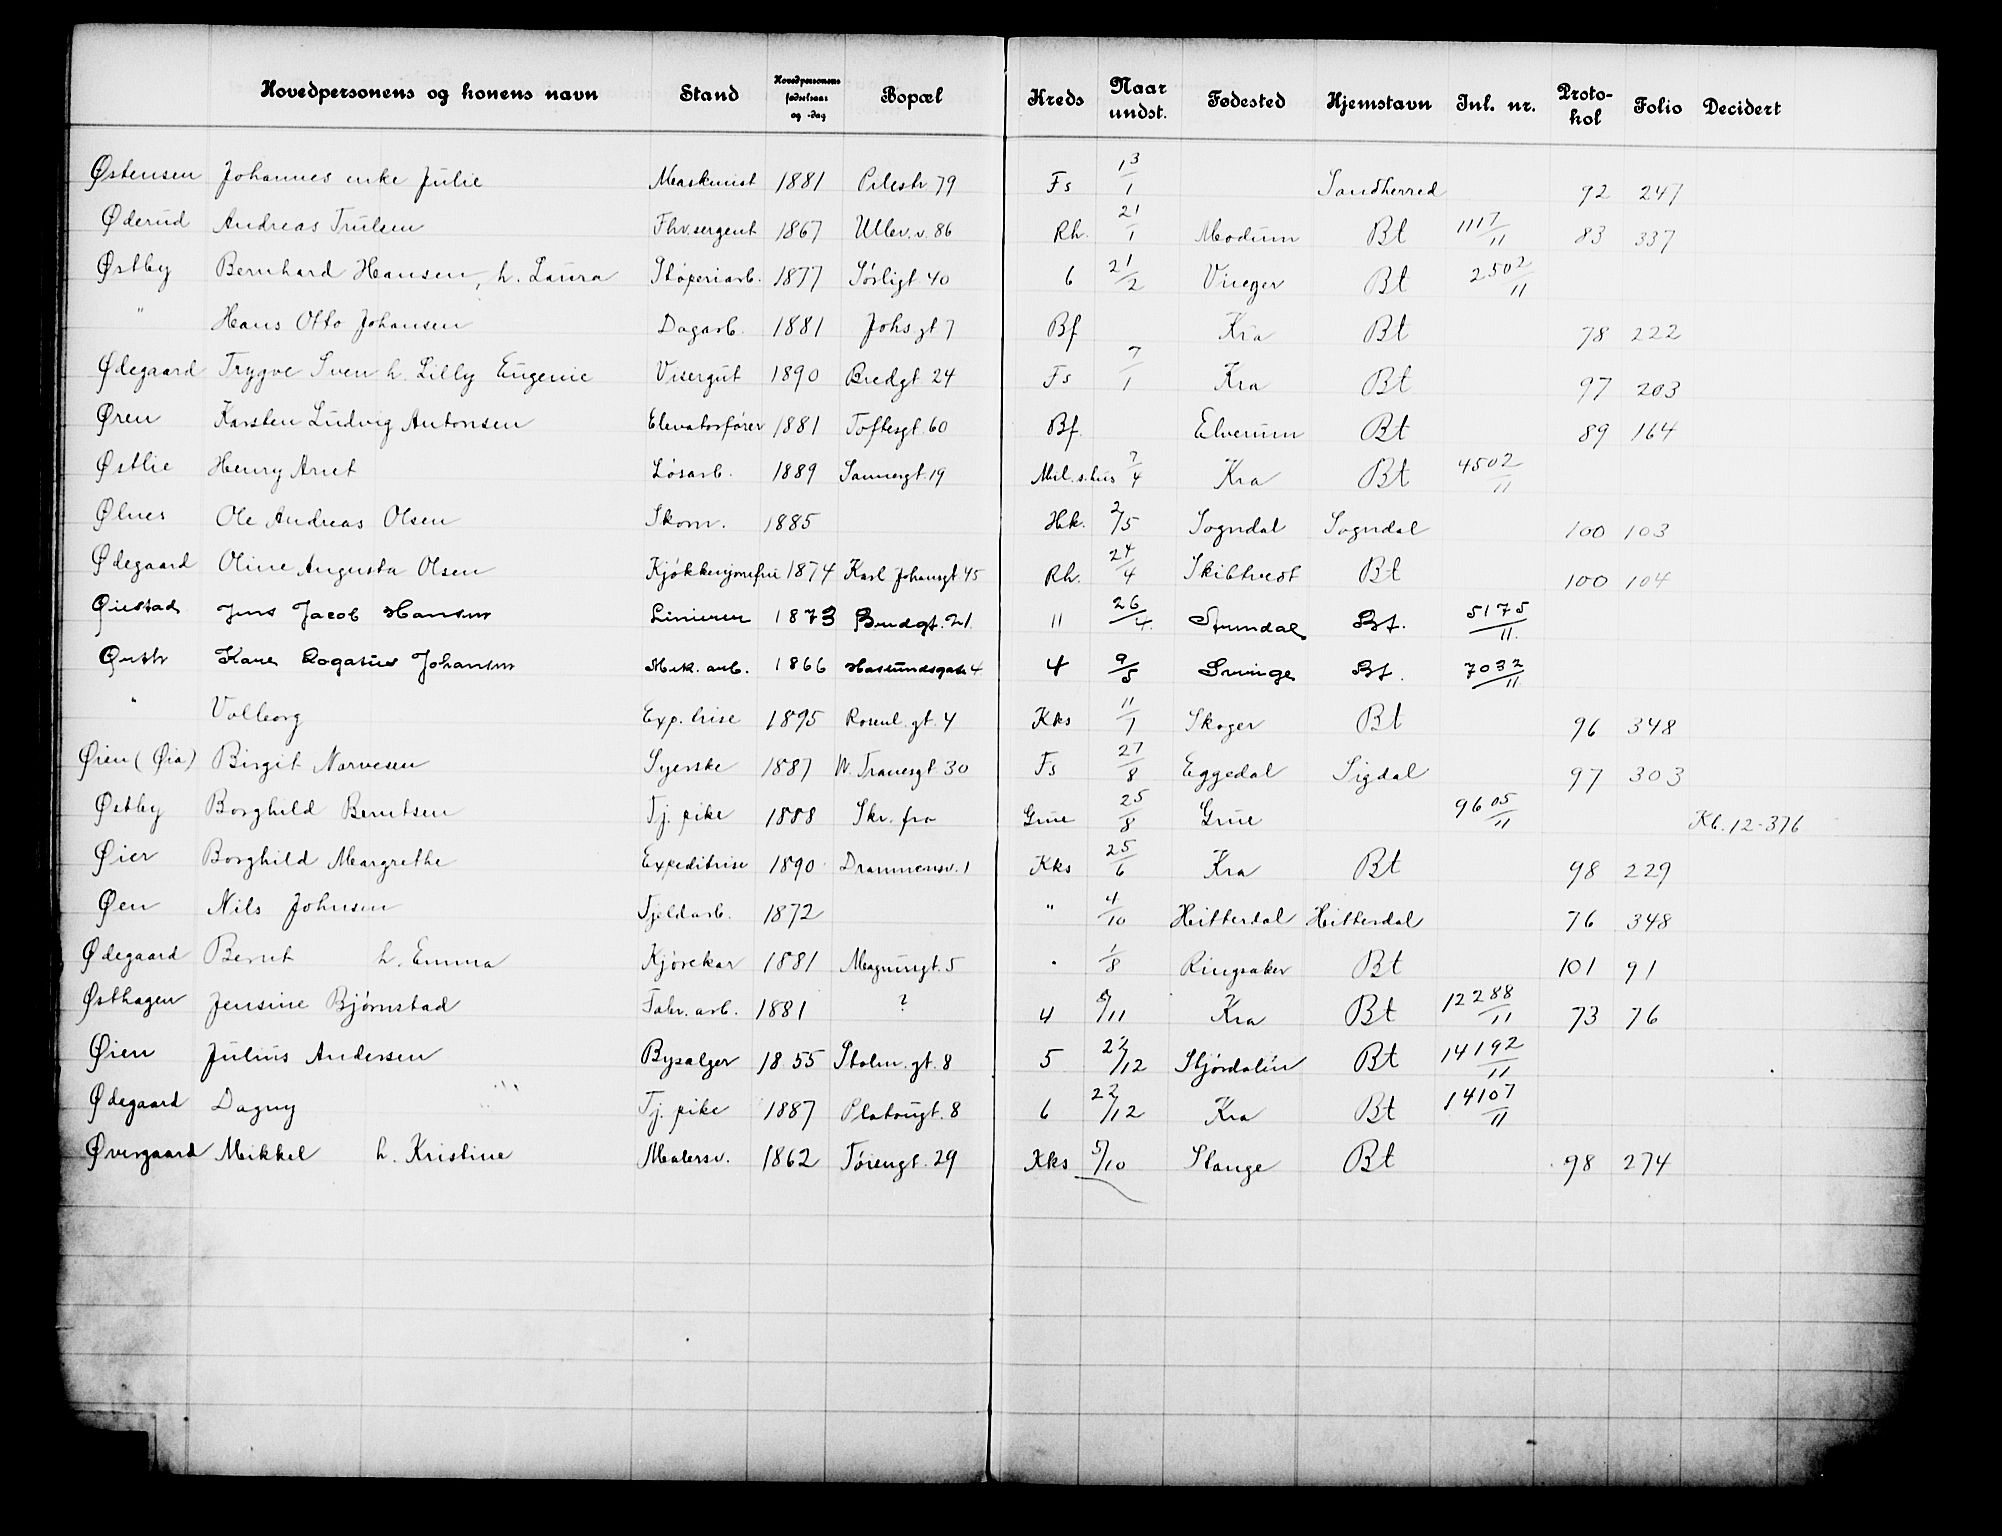 Hovedpersonens og konens navn Stand Hovedpersonens fødselsaar og -dag Bopæl Kreds Naar undst. Fødested Hjemstavn Inl. nr. Protokol Folio Decidert
Østensen Johannes enke Julie Maskinist 1881 Pilestr 79 Fs 13/1 Sandherred 92 247
Øderud Andreas Trulsen Fhv. sergent 1867 Ullev. v. 86 Rh. 21/1 Modum Bt 1117/11 83 337
Østby Bernhard Hansen, h. Laura Støperiarb. 1877 Sørligt 40 6 21/2 Vinger Bt 2502/11
" Hans Otto Johansen Dagarb. 1881 Johs. gt 7 Bf Kra Bt 78 222
Ødegaard Trygve Sven h. Lilly Eugenie Visergut 1890 Bredgt 24 Fs 7/1 Kra Bt 97 203
Øren Karsten Ludvig Antonsen Elevatorfører 1881 Toftesgt 60 Bf. Elverum Bt 89 164
Østlie Henry Arnt Løsarb. 1889 Sannergt. 19 Mil. s. hus 7/4 Kra Bt 4502/11
Ølnes Ole Andreas Olsen Skom. 1885 Hk. 2/5 Sogndal Sogndal 100 103
Ødegaard Oline Augusta Olsen 1874 Karl Johansgt 45 Rh. 24/4 Skibtvedt Bt 100 104
Øiestad Jens Jacob Hansen Linierer 1873 Bredgt. 21 11 26/4 Bt. 5175/11
Kare Johansen Mek. arb. 1866 4 9/5 Bt. 7032/11
" Valborg Exp. trise 1895 Rosenl. gt. 4 Kks 11/1 Skoger Bt 96 348
Øien (Øia) Birgit Narvesen Syerske 1887 N. Tranesgt 30 Fs 27/8 Eggedal Sigdal 97 303
Østby Borghild Berntsen Tj. pike 1888 Skr. fra Grue 25/8 Grue 9605/11 Kb. 12-376
Øier Borghild Margrethe Expeditrise 1890 Drammensv. 1 Kks 25/6 Kra Bt 98 229
Øen Nils Johnsen Fjeldarb. 1872 " 4/10 Hitterdal Hitterdal 76 348
Ødegaard Bernt h. Emma Kjørekar 1881 Magnusgt. 5 1/8 Ringsaker Bt 101 91
Østhagen Jensine Bjørnstad Fabr. arb. 1881 ? 4 8/11 Kra Bt 12288/11 73 76
Øien Julius Andersen Bysælger 1855 Stolm. gt. 8 5 22/12 Stjørdalen Bt 14192/11
Ødegaard Dagny Tj. pike 1887 Platougt. 8 6 22/12 Kra Bt 14107/11
Øvergaard Mikkel h. Kristine Malersv. 1862 Tøiengt. 29 Kks 5/10 Stange Bt 98 274